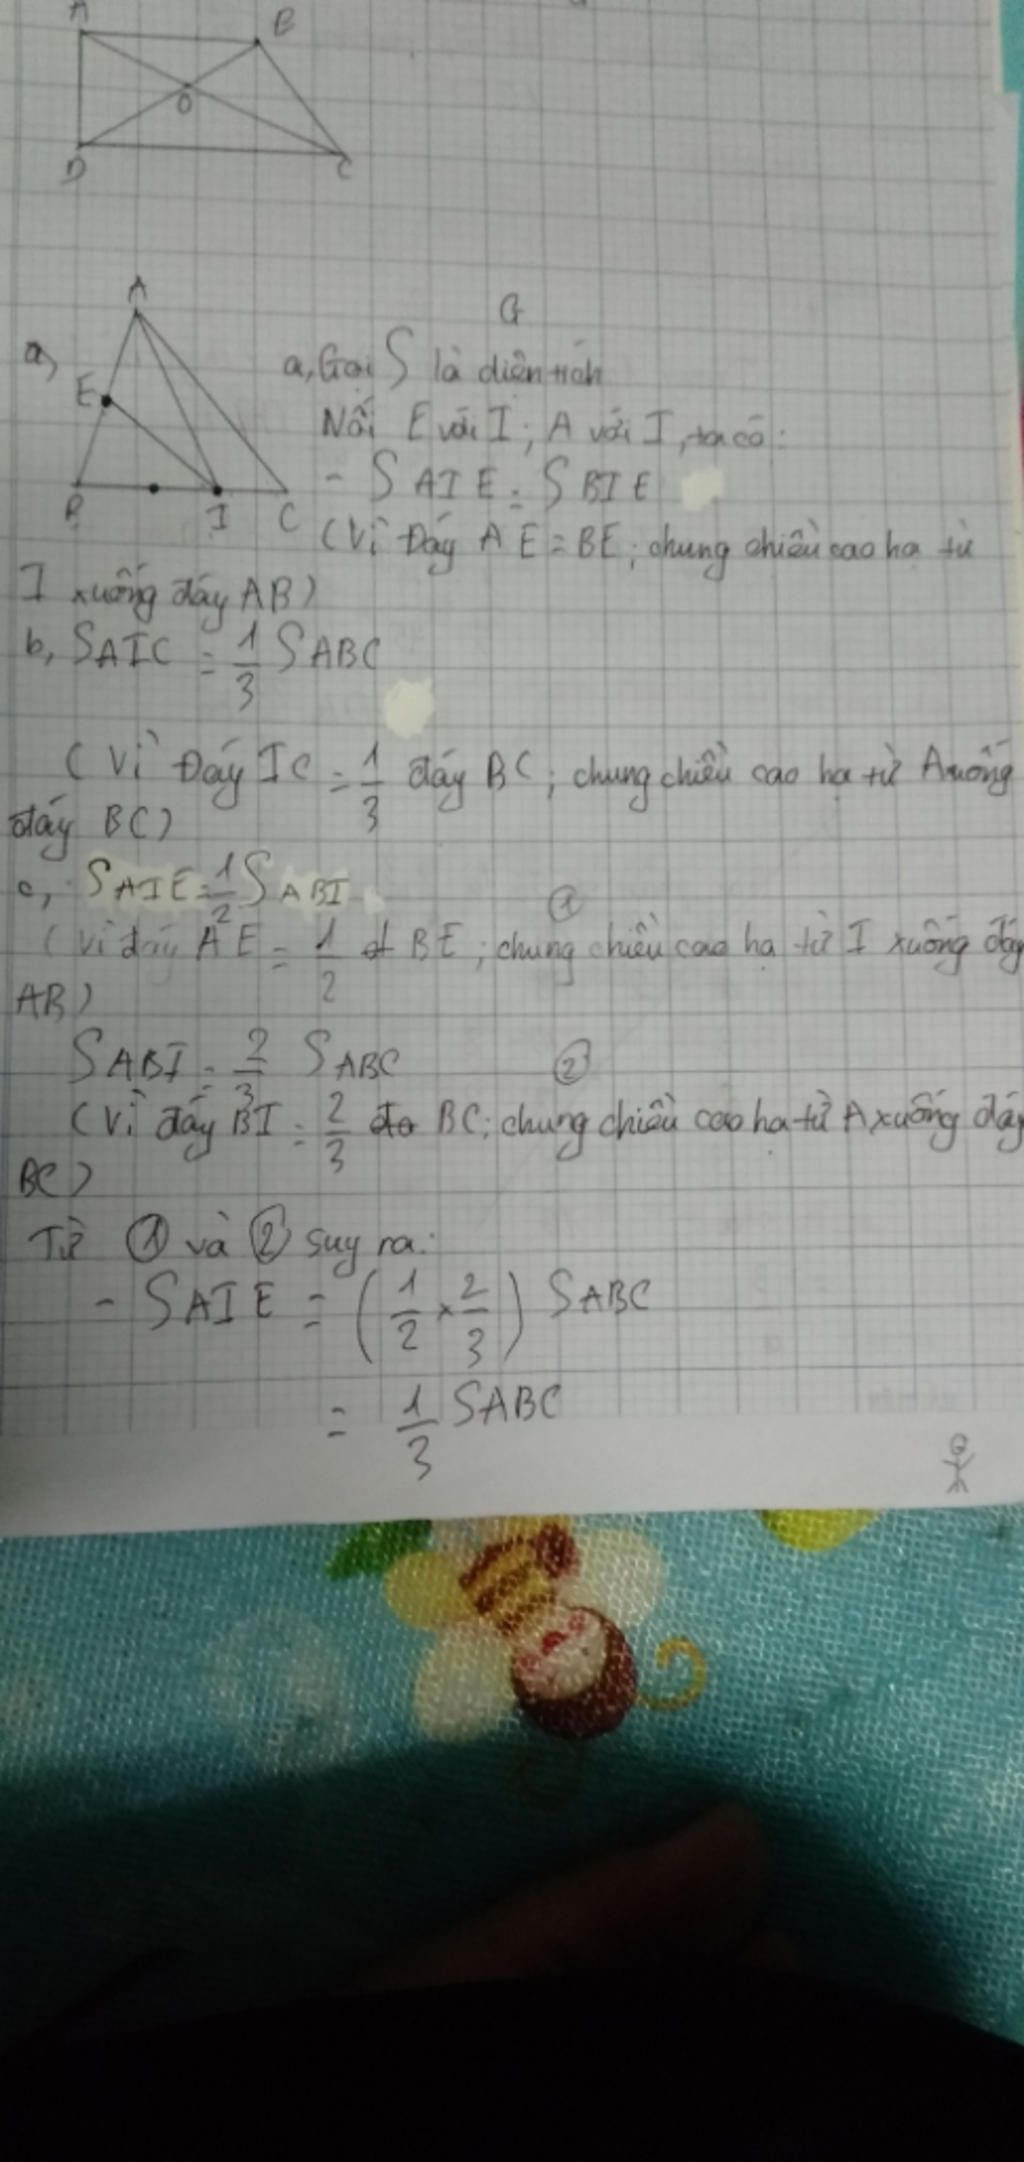 A B
O
D C
A
a, G
E a, Gọi S là diện tích
Nối E với I; A với I, ta có:
B I C - SAIE = SBIE
(Vì Đáy AE = BE; chung chiều cao hạ từ
I xuống đáy AB)
b, SAIC = 1/3 SABC
(Vì Đáy IC = 1/3 đáy BC; chung chiều cao hạ từ A xuống
đáy BC)
c, SAIE = 1/2 SABI ①
(Vì đáy AE = 1/2 đ BE; chung chiều cao hạ từ I xuống đáy
AB)
SABI = 2/3 SABC ②
(Vì đáy BI = 2/3 BC; chung chiều cao hạ từ A xuống đáy
BC)
Từ ① và ② suy ra:
- SAIE = (1/2 x 2/3) SABC
= 1/3 SABC